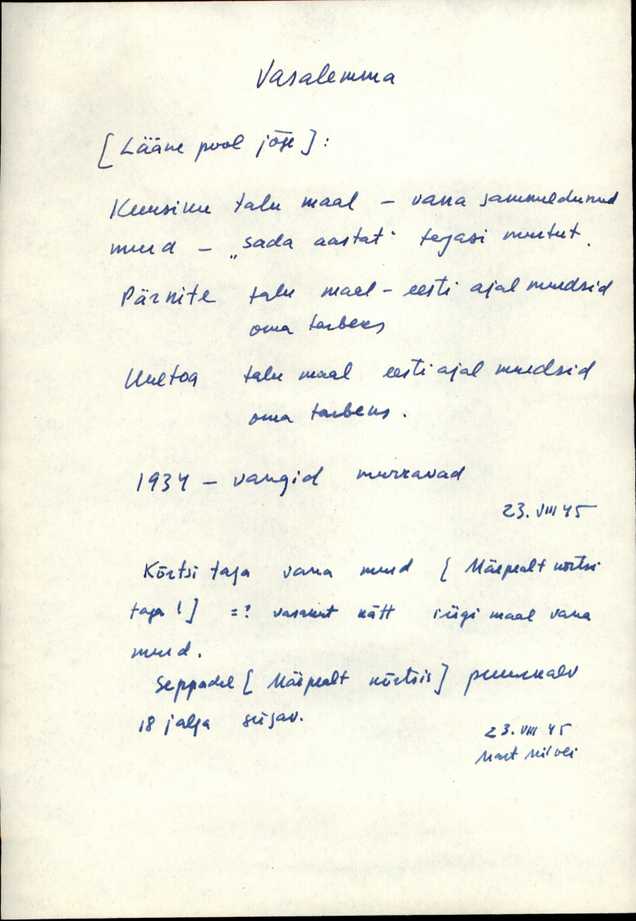 Vasalemma
[Lääne pool jõge]:
Kuusiku talu maal – vana sammeldunud
murd – „sada aastat“ tagasi murtut.
Pärnite talu maal – eesti ajal murdsid
oma tarbeks
Uuetoa talu maal eesti ajal murdsid
oma tarbeks.
1934 – vangid murravad
23. VIII 45
Kõrtsi taga vana murd [ Mäepealt kõrtsi
taga!] =? vasakut kätt riigi maal vana
murd.
Seppadel [ Mäepealt kõrtsis] puurkaev
18 jalga sügav.
23. VIII 45
Mart